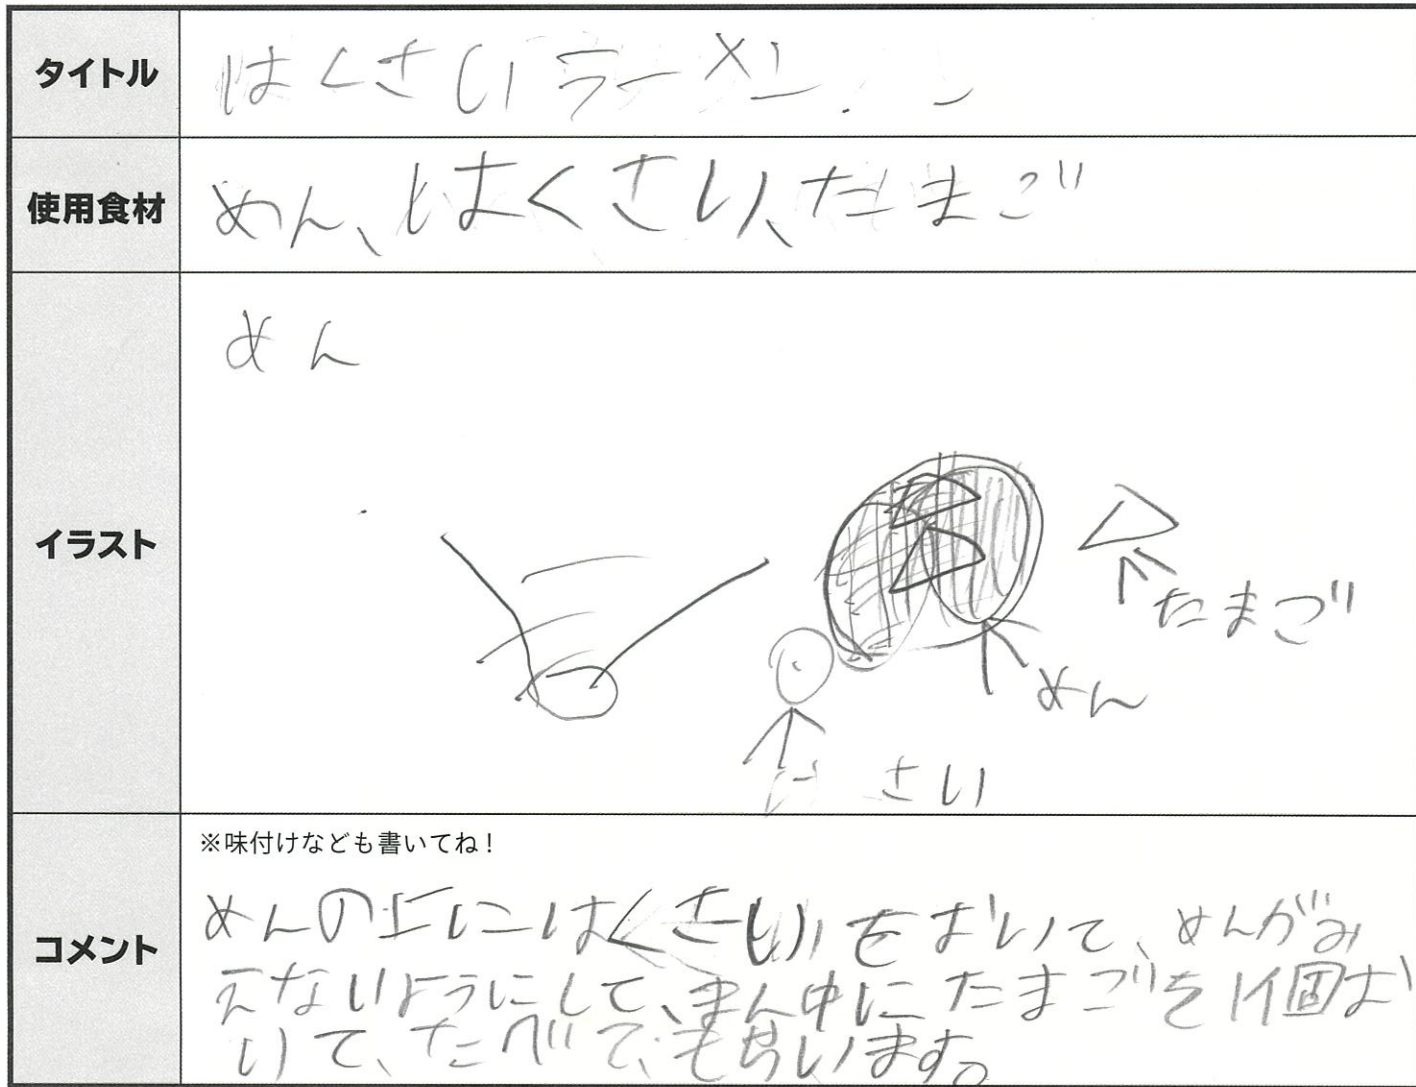 タイトル
はくさいラーメン
使用食材
めん、はくさい、たまご
イラスト
めん
たまご
めん
は さい
コメント
※味付けなども書いてね！
めんの上にはくさいをおいて、めんがみ
えないようにして、まん中にたまごを1個お
いて、たべてもらいます。